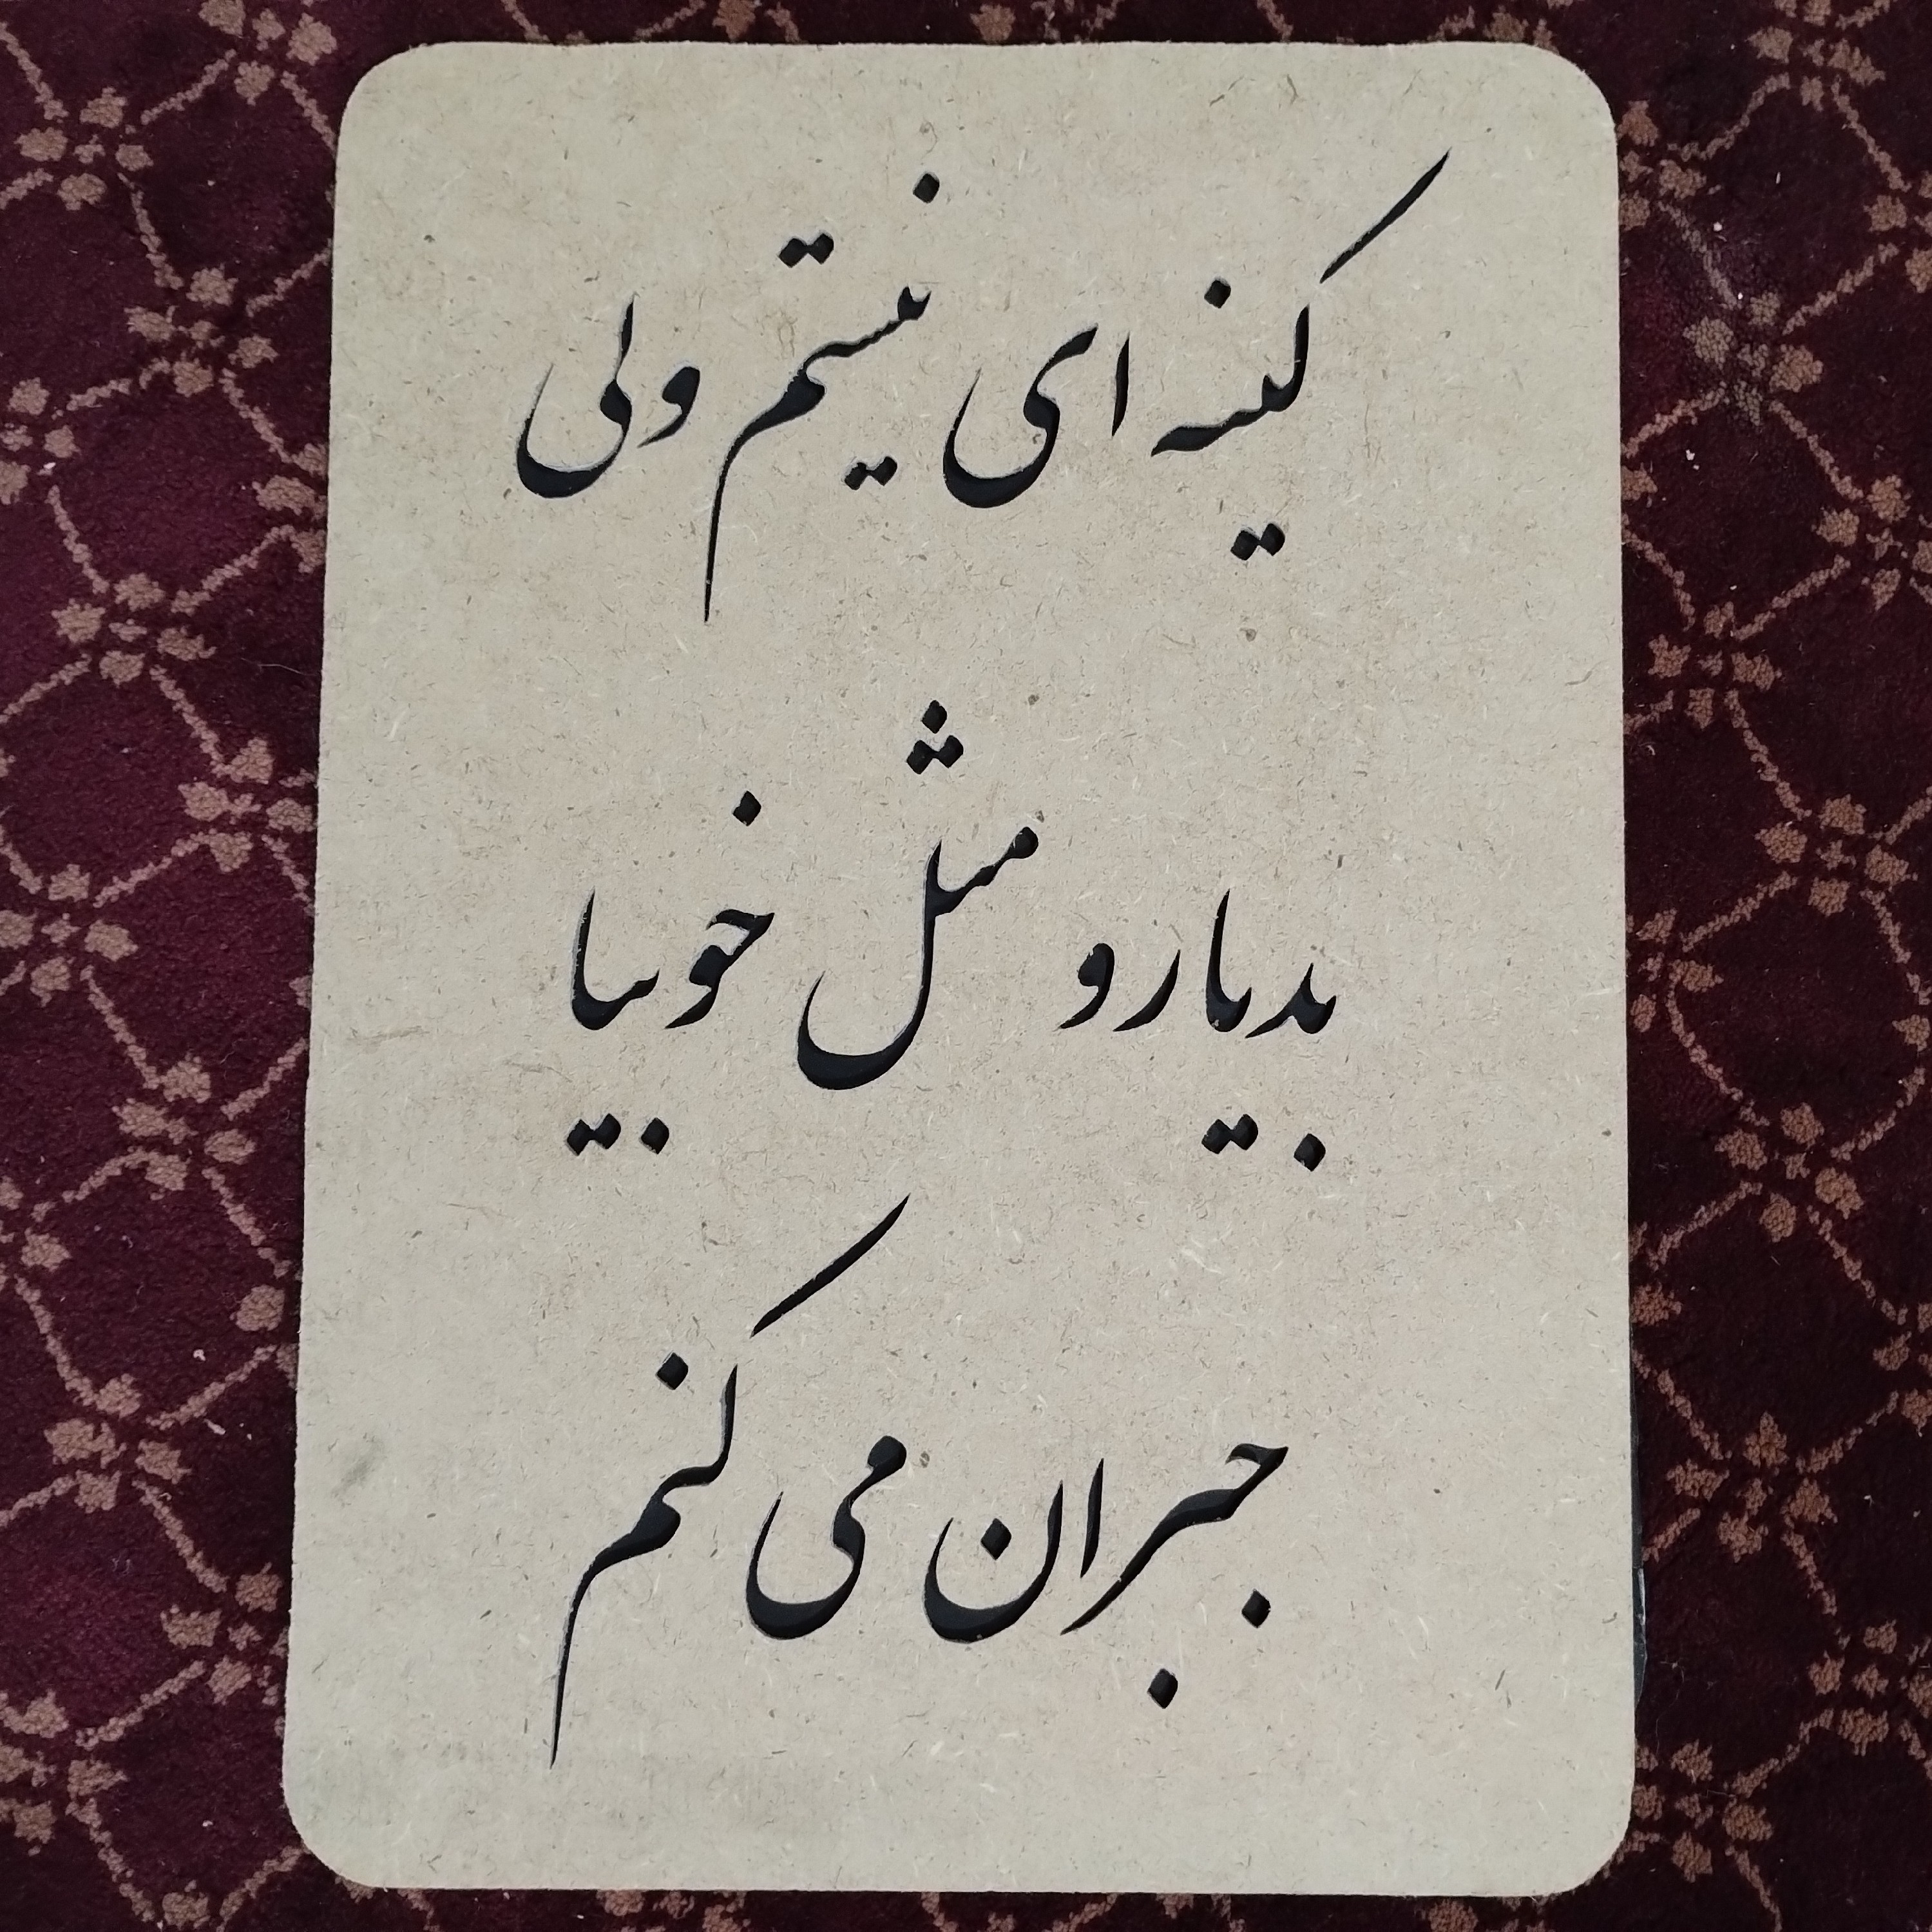 کینه ای نیستم ولی
بدیارو مثل خوبیا
جبران می کنم